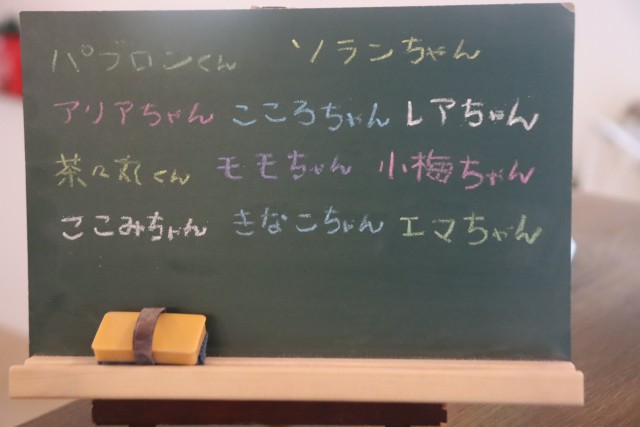 パブロンくん ソランちゃん
アリアちゃん こころちゃん レアちゃん
茶々丸くん モモちゃん 小梅ちゃん
ここみちゃん きなこちゃん エマちゃん